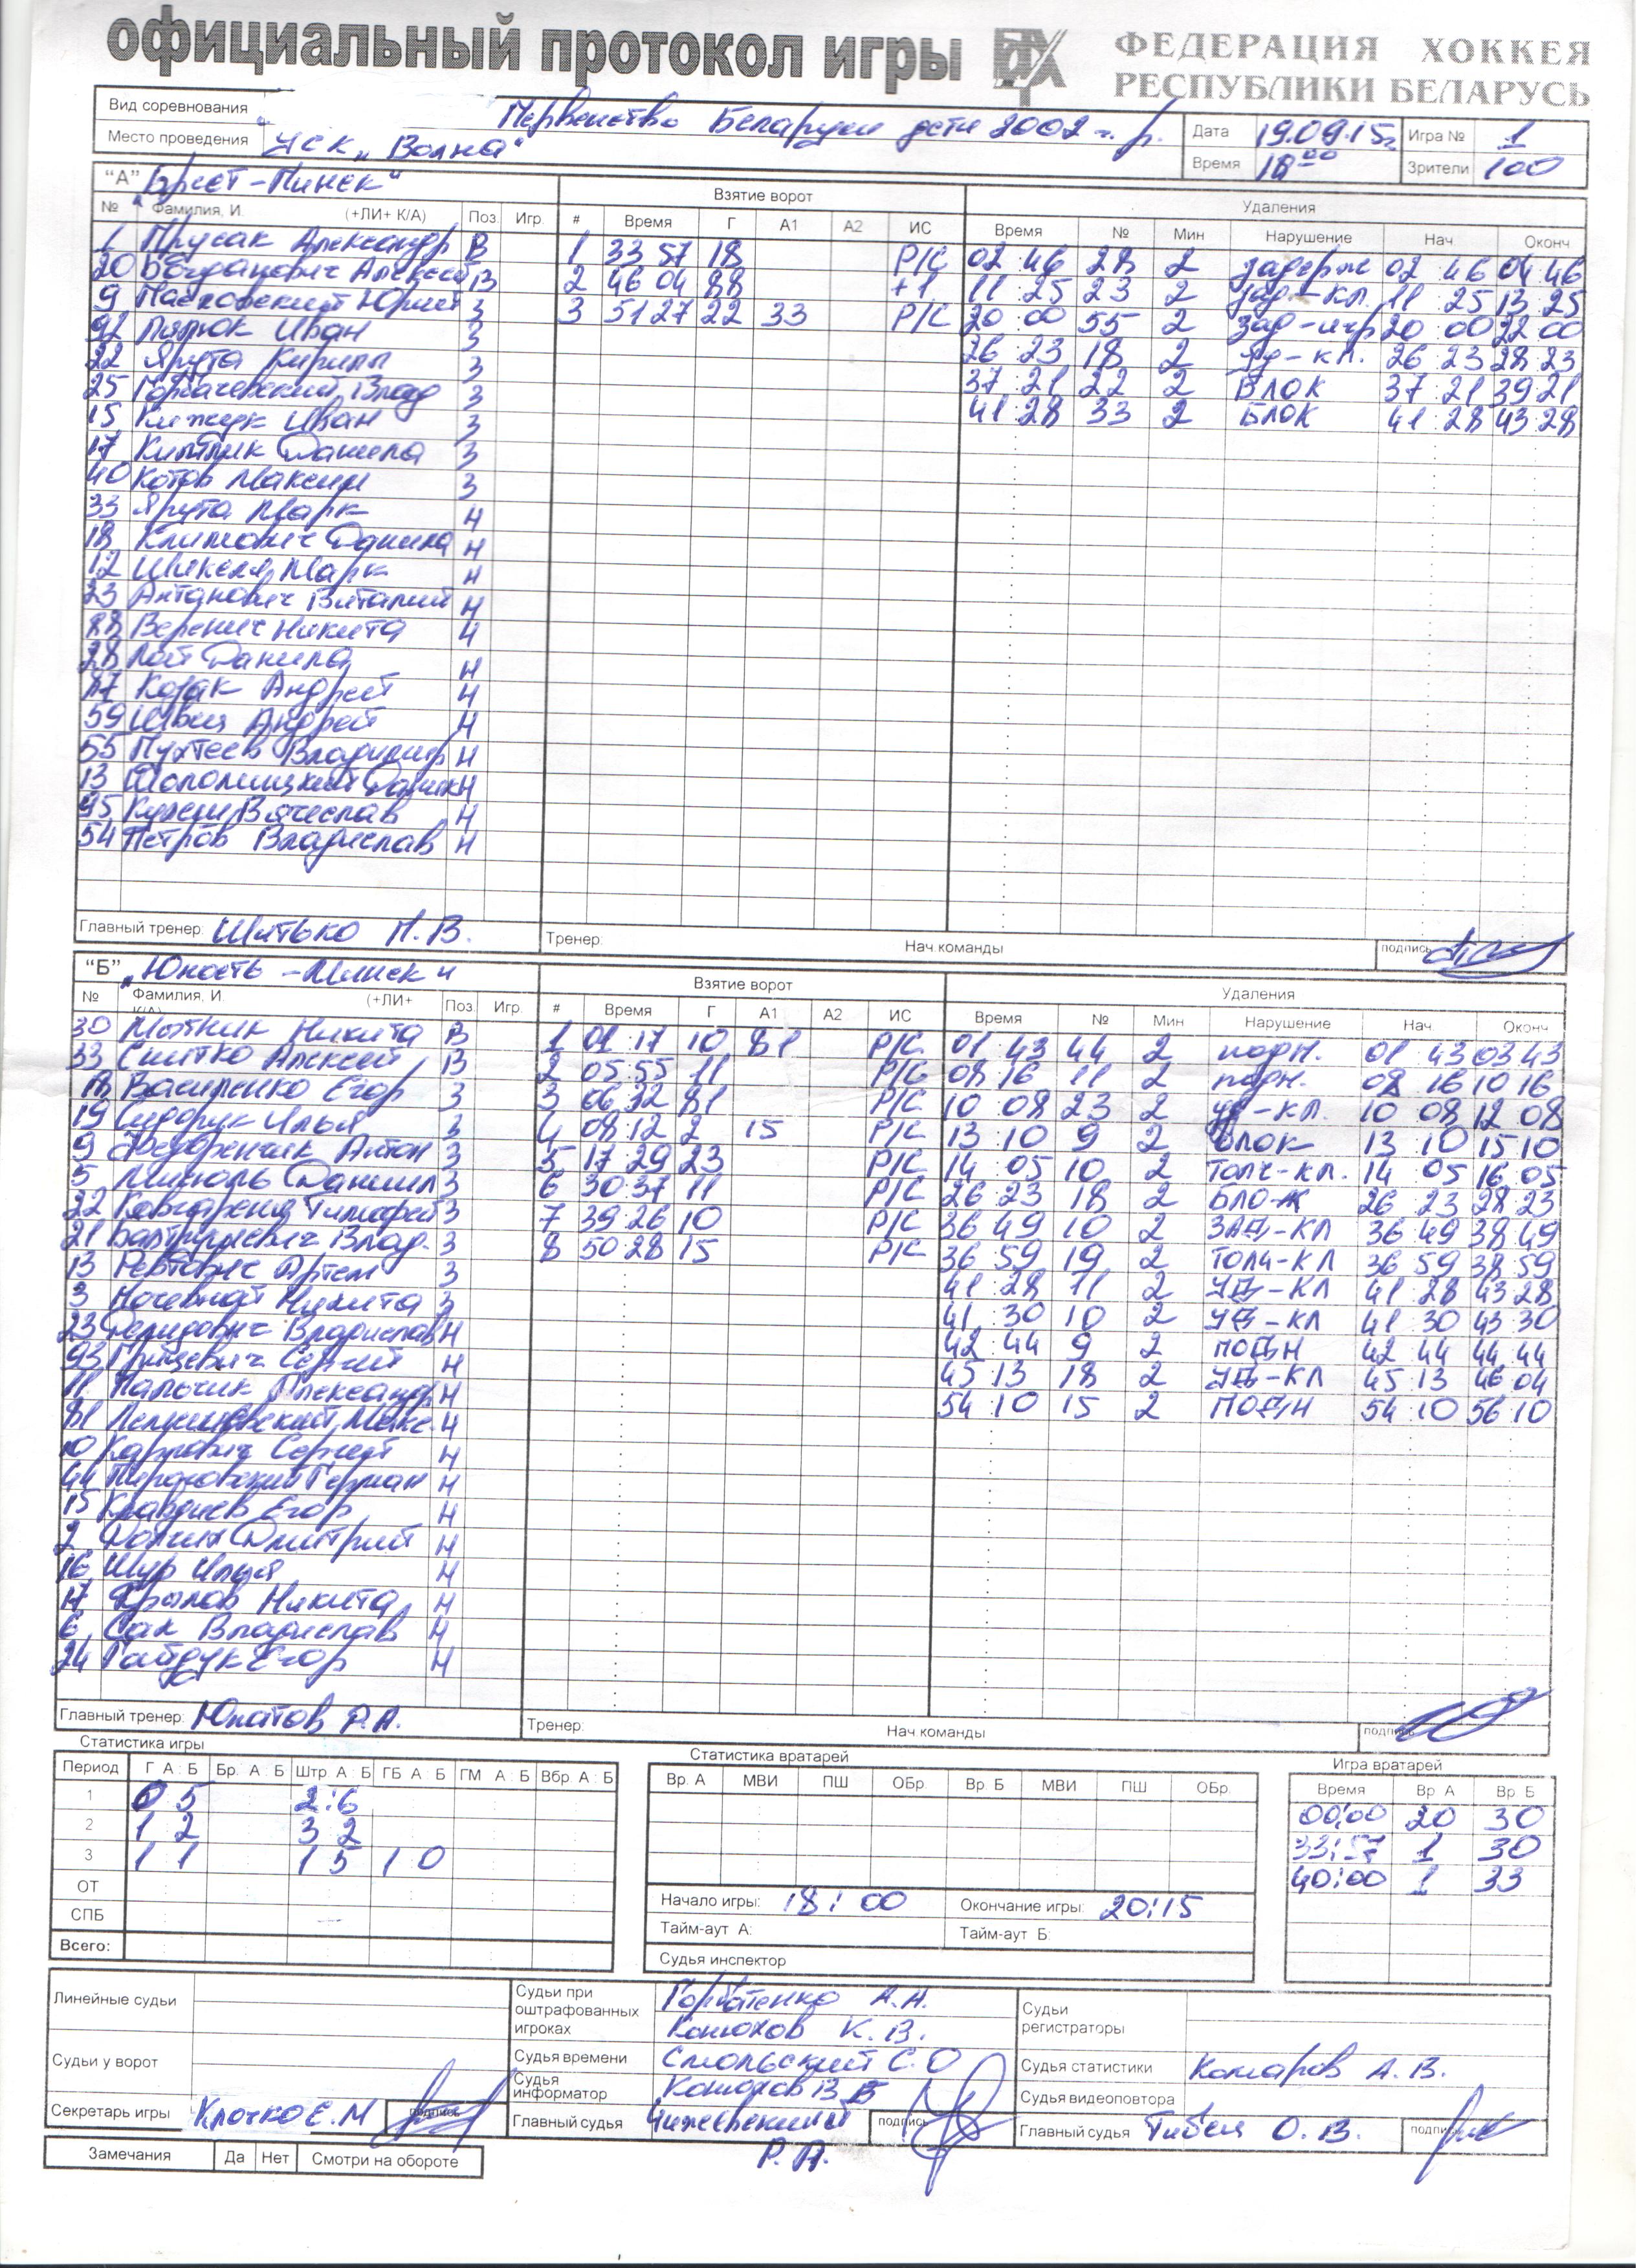 официальный протокол игры
ФЕДЕРАЦИЯ ХОККЕЯ
РЕСПУБЛИКИ БЕЛАРУСЬ
Вид соревнования Первенство Беларуси дети 2002 г. р. Дата 19.09.15г Игра № 1
Место проведения УСК „Волна" Время 18 00 Зрители 100
"А" „Брест-Пинск" Взятие ворот Удаления
№ Фамилия, И. (+ЛИ+ К/А) Поз. Игр. # Время Г А1 А2 ИС Время № Мин Нарушение Нач Оконч
1 Прусак Александр В 1 33 57 18 Р/С 02:46 28 2 задерж 02:46 04:46
20 Богданович Алексей В 2 46 04 88 +1 11 25 23 2 11 25 13 25
9 Юрий З 3 51 27 22 33 Р/С 20 00 55 2 20 00 22 00
92 Иван З 26 23 18 2 уд-кл. 26 23 28 23
22 Ярута Кирилл З 37 21 22 2 БЛОК 37 21 39 21
25 Горбачевский Влад З 41 28 33 2 БЛОК 41 28 43 28
15 Иван З
17 Данила З
40 Котов Максим З
33 Ярута Марк Н
18 Климович Данила Н
12 Марк Н
23 Антанович Виталий Н
88 Веренич Никита Н
28 Лой Данила Н
87 Козак Андрей Н
59 Швец Андрей Н
55 Пухтеев Владимир Н
13 Н
95 Вячеслав Н
54 Петров Владислав Н
Главный тренер: Шитько Тренер: Нач.команды подпись
"Б" „Юность-Минск" Взятие ворот Удаления
№ Фамилия, И. (+ЛИ+ К/А) Поз. Игр. # Время Г А1 А2 ИС Время № Мин Нарушение Нач. Оконч
30 Мытник Никита В 1 01:17 10 81 Р/С 01:43 44 2 подн. 01:43 03 43
33 Снитко Алексей В 2 05:55 11 Р/С 08 16 11 2 подн. 08 16 10 16
18 Василенко Егор З 3 06:32 81 Р/С 10 08 23 2 уд-кл. 10 08 12 08
19 Сидорук Илья З 4 08:12 2 15 Р/С 13 10 9 2 блок 13 10 15 10
9 Федоренчик Антон З 5 17:29 23 Р/С 14 05 10 2 Толч-кл. 14 05 16 05
5 Даниил З 6 30:37 11 Р/С 26 23 18 2 БЛО-К 26 23 28 23
22 Тимофей З 7 39:26 10 Р/С 36 49 10 2 ЗАД-КЛ 36 49 38 49
21 Балтрушевич Влад. З 8 50:28 15 Р/С 36:59 19 2 ТОЛЧ-КЛ 36 59 38 59
13 Артем З 41:28 11 2 УД-КЛ 41 28 43 28
3 Ночевной Никита З 41:30 10 2 УД-КЛ 41 30 43 30
23 Владислав Н 42:44 9 2 ПОДН 42 44 44 44
93 Грицевич Сергей Н 45:13 18 2 УД-КЛ 45 13 46 04
11 Пальчик Александр Н 54:10 15 2 ПОДН 54 10 56 10
81 Н
10 Карпович Сергей Н
44 Герман Н
15 Клавдиев Егор Н
2 Долгих Дмитрий Н
16 Шур Илья Н
17 Крылов Никита Н
6 Сак Владислав Н
24 Гайдук Егор Н
Главный тренер: Юпатов Р.А. Тренер: Нач.команды подпись
Статистика игры Статистика вратарей Игра вратарей
Период Г А : Б Бр. А : Б Штр. А : Б ГБ А : Б ГМ А : Б Вбр. А : Б Вр. А МВИ ПШ ОБр. Вр. Б МВИ ПШ ОБр. Время Вр А Вр. Б
1 0 5 2:6 00:00 20 30
2 1 2 3 2 33:57 1 30
3 1 1 1 5 1 0 40:00 1 33
ОТ Начало игры: 18:00 Окончание игры: 20:15
СПБ Тайм-аут А: Тайм-аут Б:
Всего: Судья инспектор
Линейные судьи Судьи при оштрафованных игроках Горбатенко А.А. Судьи регистраторы
Конюхов К.В.
Судьи у ворот Судья времени Смольский С.О Судья статистики Комаров А.В.
Судья информатор Конюхов В В Судья видеоповтора
Секретарь игры Клочко Е.М подпись Главный судья Чижевский подпись Главный судья О.В. подпись
Р.А.
Замечания Да Нет Смотри на обороте